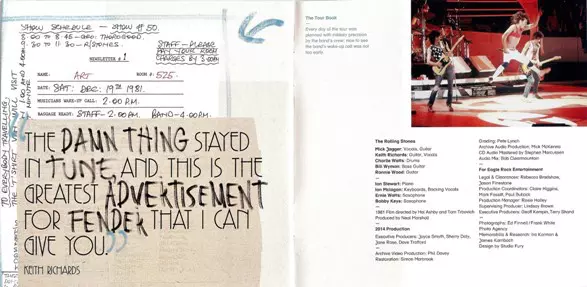 SHOW SCHEDULE - SHOW # 50.
8.00 TO 8.45 - GEO. THOROGOOD.
30 TO 11.30 - R/STONES.
STAFF - PLEASE
PAY YOUR ROOM
CHARGES BY 3.00PM
NEWSLETTER # 1
NAME: ART ROOM #: 525.
DATE: SAT: DEC. 19TH 1981.
MUSICIANS WAKE-UP CALL: 2.00 P.M.
BAGGAGE READY: STAFF - 2.00PM. BAND - 4.00PM.
TO EVERYBODY TRAVELLING,
THE DAMN THING STAYED
IN TUNE, AND THIS IS THE
GREATEST ADVERTISEMENT
FOR FENDER THAT I CAN
GIVE YOU.”
KEITH RICHARDS
The Tour Book
Every day of the tour was
planned with military precision
by the band's crew; nice to see
the band's wake up call was not
too early.
The Rolling Stones
Mick Jagger: Vocals, Guitar
Keith Richards: Guitar, Vocals
Charlie Watts: Drums
Bill Wyman: Bass Guitar
Ronnie Wood: Guitar
Ian Stewart: Piano
Ian McLagan: Keyboards, Backing Vocals
Ernie Watts: Saxophone
Bobby Keys: Saxophone
1981 Film directed by Hal Ashby and Tom Trbovich
Produced by Ned Marshall
2014 Production
Executive Producers: Joyce Smyth, Sherry Daly,
Jane Rose, Dave Trafford
Archive Video Production: Phil Davey
Restoration: Simon Marbrook
Grading: Pete Lynch
Archive Audio Production: Mick McKenna
CD Audio Mastered by Stephen Marcussen
Audio Mix: Bob Clearmountain
For Eagle Rock Entertainment
Legal & Clearances: Rebecca Bradshaw,
Jason Firestone
Production Coordinators: Claire Higgins,
Mark Powell, Paul Bullock
Production Manager: Rosie Holley
Supervising Producer: Lindsay Brown
Executive Producers: Geoff Kempin, Terry Shand
Photographs: Ed Finnell / Frank White
Photo Agency
Memorabilia & Research: Ira Korman &
James Karnbach
Design by Studio Fury